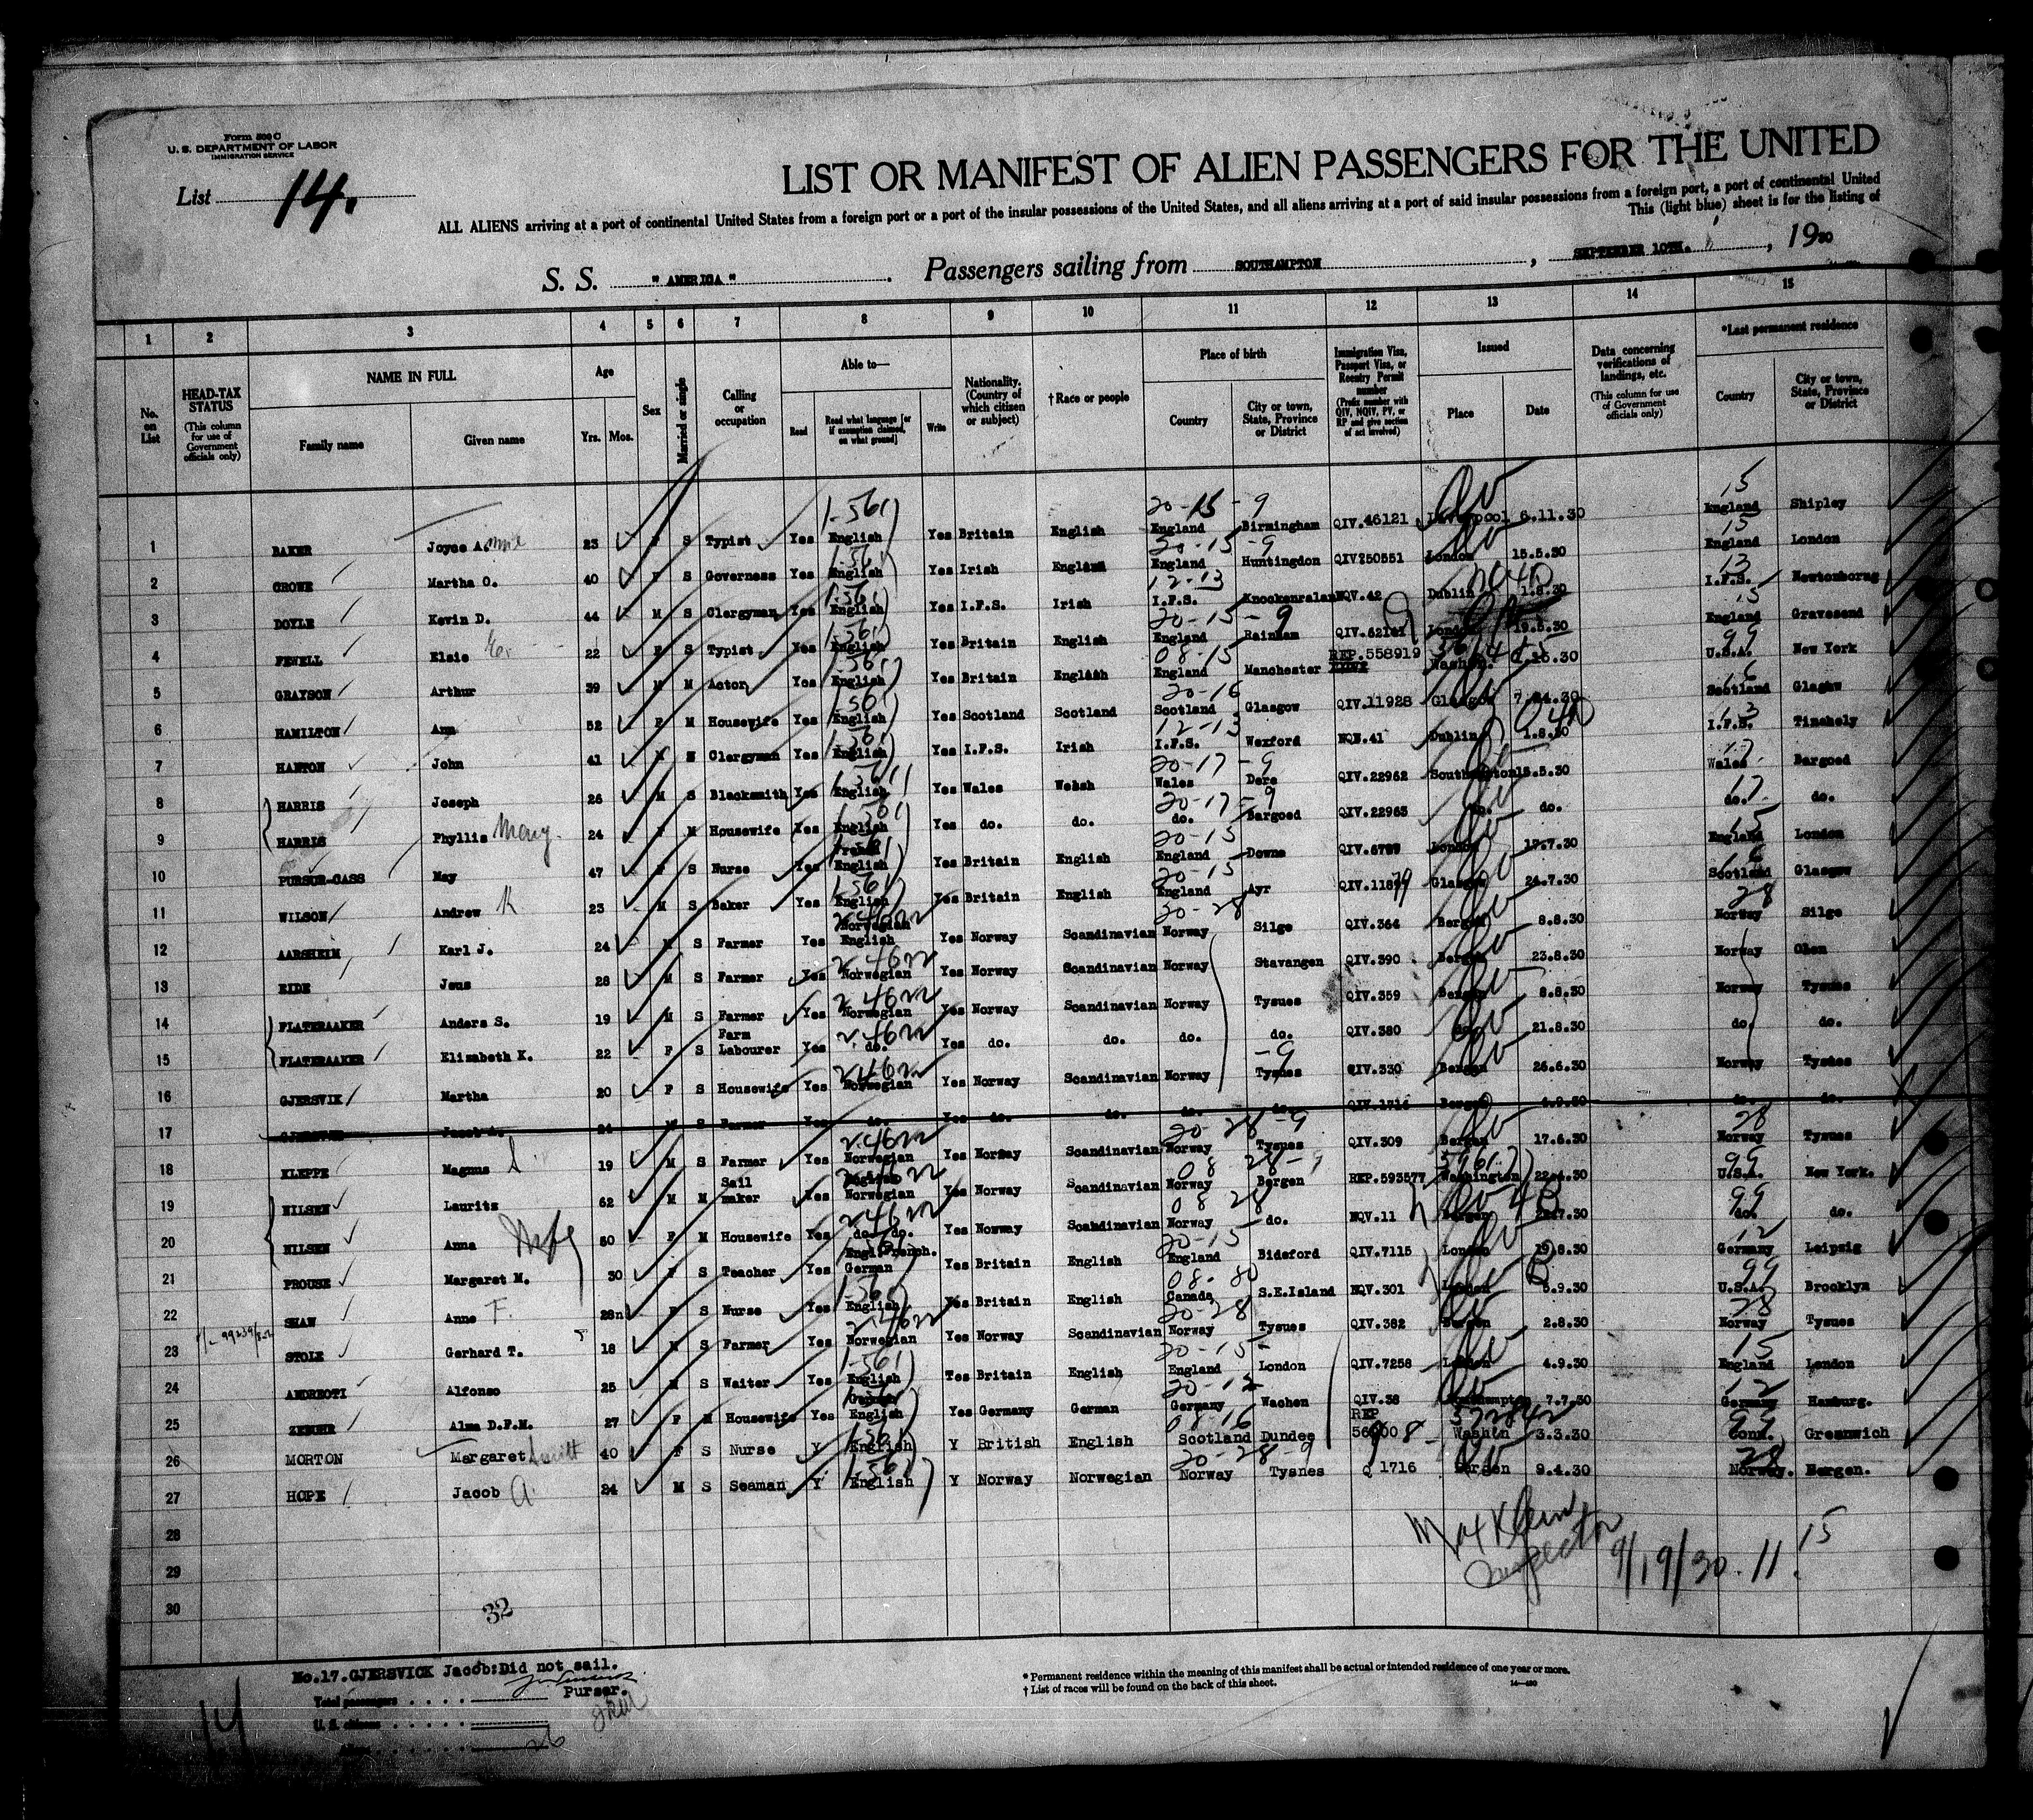 Form 500 C
U. S. DEPARTMENT OF LABOR
IMMIGRATION SERVICE
List 14.
LIST OR MANIFEST OF ALIEN PASSENGERS FOR THE UNITED
ALL ALIENS arriving at a port of continental United States from a foreign port or a port of the insular possessions of the United States, and all aliens arriving at a port of said insular possessions from a foreign port, a port of continental United
This (light blue) sheet is for the listing of
S. S. "AMERICA". Passengers sailing from SOUTHAMPTON, SEPTEMBER 10TH., 1930
1 2 3 4 5 6 7 8 9 10 11 12 13 14 15
No. on List
HEAD-TAX STATUS (This column for use of Government officials only)
NAME IN FULL Family name Given name
Age Yrs. Mos.
Sex
Married or single
Calling or occupation
Able to— Read Read what language [or if exemption claimed, on what ground] Write
Nationality. (Country of which citizen or subject)
†Race or people
Place of birth Country City or town, State, Province or District
Immigration Visa, Passport Visa, or Reentry Permit number (Prefix number with QIV, NQIV, PV, or RP and give section of act involved)
Issued Place Date
Data concerning verifications of landings, etc. (This column for use of Government officials only)
*Last permanent residence Country City or town, State, Province or District
1 BAKER Joyce A. 23 F S Typist Yes English Yes Britain English England Birmingham QIV.46121 Liverpool 6.11.30 England Shipley
2 CROWE Martha O. 40 F S Governess Yes English Yes Irish English England Huntingdon QIV250551 London 15.5.30 England London
3 DOYLE Kevin D. 44 M S Clergyman Yes English Yes I.F.S. Irish I.F.S. NQV.42 Dublin 1.8.30 I.F.S.
4 FEWELL Elsie 22 F S Typist Yes English Yes Britain English England Rainham London 19.5.30 England Gravesend
5 GRAYSON Arthur 39 M M Actor Yes English Yes Britain English England Manchester REP.558919 Washn. U.S.A. New York
6 HAMILTON Ann 52 F M Housewife Yes English Yes Scotland Scotland Scotland Glasgow QIV.11928 Glasgow 7.24.30 Scotland Glasgow
7 HANTON John 41 M S Clergyman Yes English Yes I.F.S. Irish I.F.S. Wexford NQV.41 Dublin 1.8.30 I.F.S. Tinahely
8 HARRIS Joseph 26 M S Blacksmith Yes English Yes Wales Welsh Wales Dere QIV.22962 Southampton 15.5.30 Wales Bargoed
9 HARRIS Phyllis Mary 24 F M Housewife Yes English Yes do. do. do. Bargoed QIV.22963 do. do. do. do.
10 PURSUR-CASS May 47 F S Nurse Yes French English Yes Britain English England Downe London 17.7.30 England London
11 WILSON Andrew K 23 M S Baker Yes English Yes Britain English England Ayr Glasgow 24.7.30 Scotland Glasgow
12 AARSHEIM Karl J. 24 M S Farmer Yes Norwegian English Yes Norway Scandinavian Norway Silge QIV.364 Bergen 8.8.30 Norway Silge
13 EIDE Jens 28 M S Farmer Yes Norwegian Yes Norway Scandinavian Norway Stavangen QIV.390 Bergen 23.8.30 Norway Olen
14 FLATERAAKER Anders S. 19 M S Farmer Yes Norwegian Yes Norway Scandinavian Norway Tysnes QIV.359 Bergen 8.8.30 Norway Tysnes
15 FLATERAAKER Elizabeth K. 22 F S Farm Labourer Yes do. Yes do. do. do. do. QIV.380 do. 21.8.30 do. do.
16 GJERSVIK Martha 20 F S Housewife Yes Norwegian Yes Norway Scandinavian Norway Tysnes QIV.330 Bergen 26.6.30 Norway Tysnes
17 GJERSVIK Jacob A. 24 M S Farmer Yes do. Yes do. do. do. do. QIV.1716 Bergen 4.9.30 do. do.
18 KLEPPE Magnus 19 M S Farmer Yes Norwegian Yes Norway Scandinavian Norway Tysnes QIV.309 Bergen 17.6.30 Norway Tysnes
19 NILSEN Lauritz 62 M M Sail maker Yes English Norwegian Yes Norway Scandinavian Norway Bergen REP.593577 Washington 22.4.30 U.S.A. New York.
20 NILSEN Anna 50 F M Housewife Yes do. do. Yes Norway Scandinavian Norway do. NQV.11 Bergen do. do.
21 PROUSE Margaret M. 30 F S Teacher Yes Engl. French. German Yes Britain English England Bideford QIV.7115 London 19.8.30 Germany Leipzig
22 SHAW Anne F. 28 F S Nurse Yes English Yes Britain English Canada S.E.Island NQV.301 London 5.9.30 U.S.A. Brooklyn
23 STOLE Gerhard T. 18 M S Farmer Yes Norwegian Yes Norway Scandinavian Norway Tysnes QIV.382 Bergen 2.8.30 Norway Tysnes
24 ANDREOTI Alfonso 25 M S Waiter Yes English Yes Britain English England London QIV.7258 London 4.9.30 England London
25 Alma D.F.M. 27 F M Housewife Yes German English Yes Germany German Germany Wachen QIV.38 Southampton 7.7.30 Germany Hamburg.
26 MORTON Margaret 40 F S Nurse Y English Y British English Scotland Dundee REP Washn 3.3.30 Conn. Greenwich
27 HOPE Jacob A. 24 M S Seaman Y English Y Norway Norwegian Norway Tysnes Q 1716 Bergen 9.4.30 Norway. Bergen.
28
29
30
Max Klein
Inspector
9/19/30. 11.15
32
No.17.GJERSVICK Jacob:Did not sail.
Purser.
Total passengers
U. S. citizens
Aliens 26
14
* Permanent residence within the meaning of this manifest shall be actual or intended residence of one year or more.
† List of races will be found on the back of this sheet.